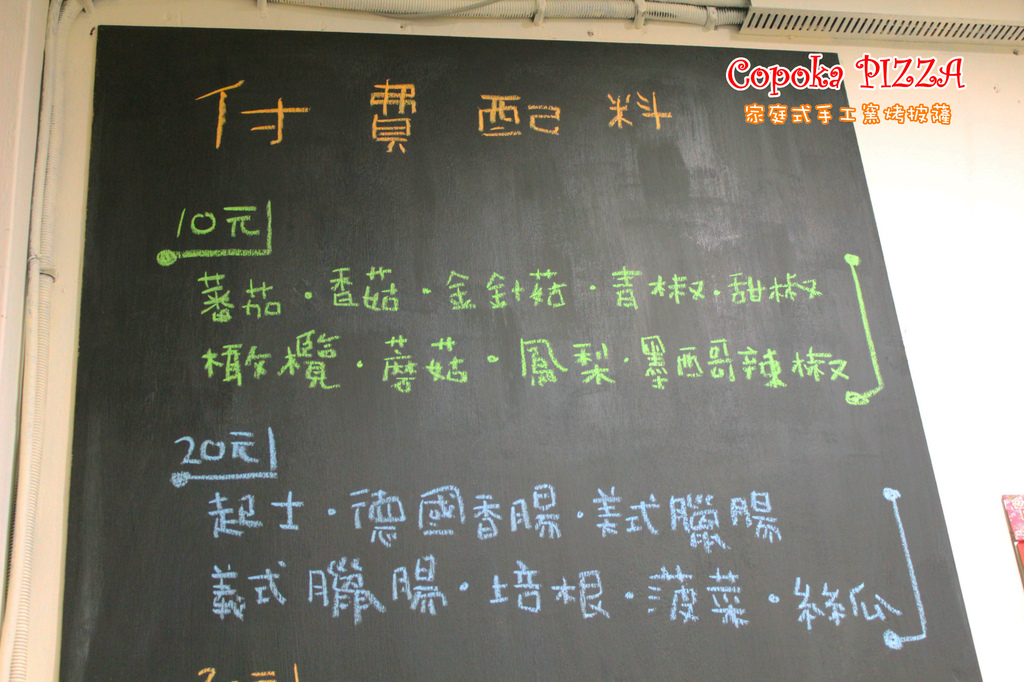 Copoka PIZZA
家庭式手工窯烤披薩
付費配料
10元
蕃茄・香菇・金針菇・青椒・甜椒
橄欖・蘑菇・鳳梨・墨西哥辣椒
20元
起士・德國香腸・美式臘腸
義式臘腸・培根・菠菜・絲瓜